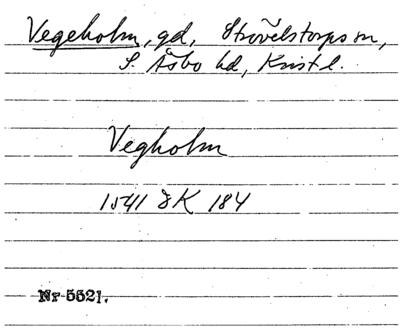 Vegeholm, gd, Strövelstorps sn,
S. Åsbo hd, Krist l.
Vegholm
1541 8K 184
Nr 5521.